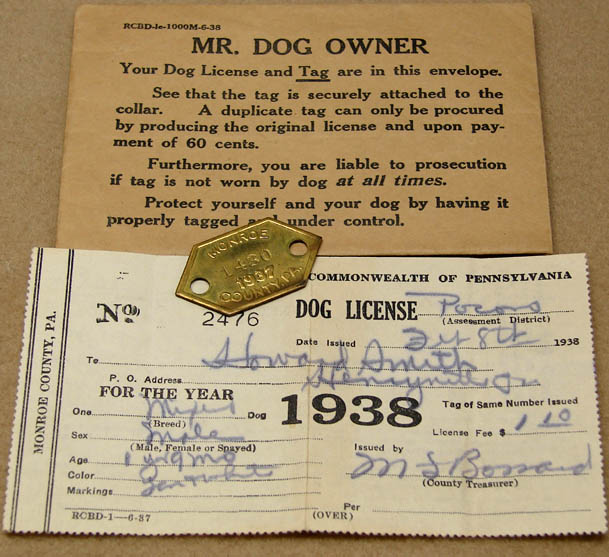 RCBD-le-1000M-6-38
MR. DOG OWNER
Your Dog License and Tag are in this envelope.
See that the tag is securely attached to the
collar. A duplicate tag can only be procured
by producing the original license and upon pay-
ment of 60 cents.
Furthermore, you are liable to prosecution
if tag is not worn by dog at all times.
Protect yourself and your dog by having it
properly tagged and under control.
MONROE
1430
1937
COUNTY, PA
MONROE COUNTY, PA.
COMMONWEALTH OF PENNSYLVANIA
No 2476 DOG LICENSE Pocono
(Assessment District)
Date Issued 8th 1938
To Howard Smith
P. O. Address Henryville Pa
FOR THE YEAR 1938
Tag of Same Number Issued
One Mixed Dog
(Breed)
License Fee $ 1 10
Sex Male
(Male, Female or Spayed)
Issued by
Age 1
M S Bossard
(County Treasurer)
Color
Markings
Per
RCBD-1—6-37
(OVER)